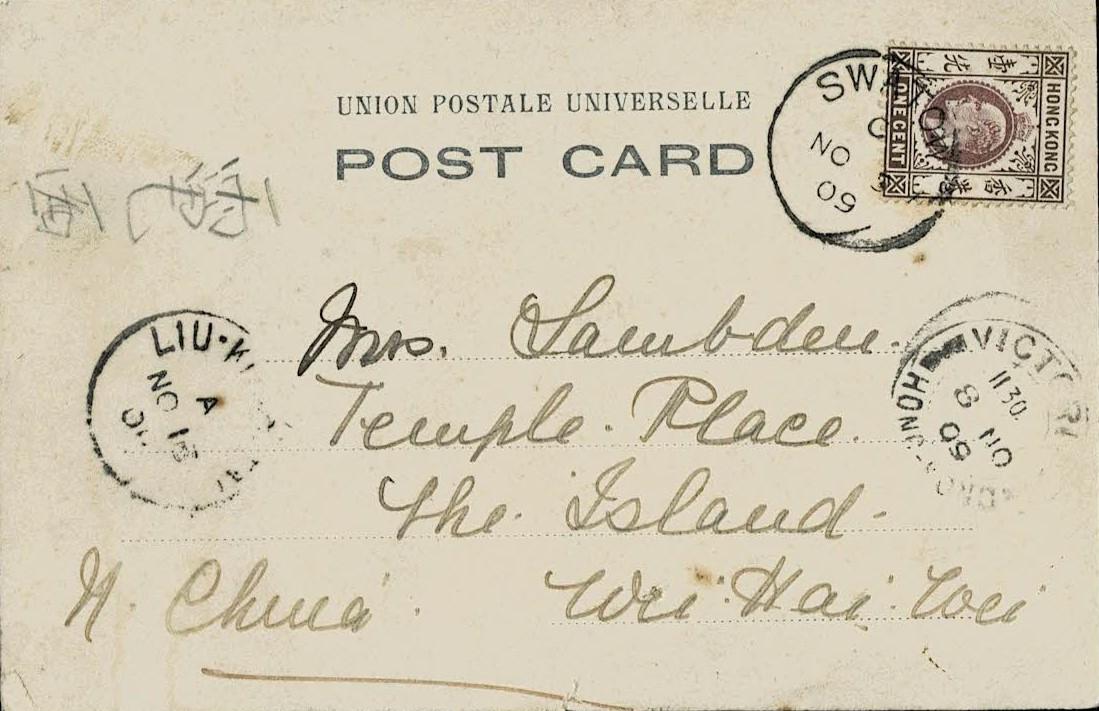 UNION POSTALE UNIVERSELLE
POST CARD
SWATOW
C
NO
09
HONG KONG
ONE CENT
LIU-K
A
NO 15
VICTORI
HONG-KONG
11 30
8 NO
09
Mrs. Lambden.
Temple. Place.
The. Island.
N. China. Wei. Hai. Wei